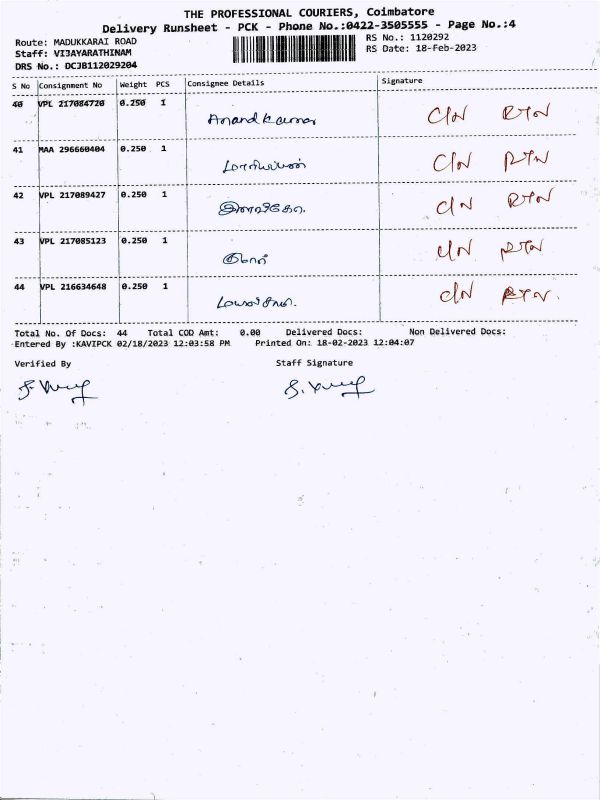 THE PROFESSIONAL COURIERS, Coimbatore
Delivery Runsheet - PCK - Phone No.:0422-3505555 - Page No.:4
Route: MADUKKARAI ROAD
RS No.: 1120292
Staff: VIJAYARATHINAM
RS Date: 18-Feb-2023
DRS No.: DCJB112029204
S No Consignment No Weight PCS Consignee Details Signature
40 VPL 217084720 0.250 1 Anand kumar C/N RTN
41 MAA 296660404 0.250 1 மாரியப்பன் C/N RTN
42 VPL 217089427 0.250 1 C/N RTN
43 VPL 217085123 0.250 1 C/N RTN
44 VPL 216634648 0.250 1 C/N RTN.
Total No. Of Docs: 44 Total COD Amt: 0.00 Delivered Docs: Non Delivered Docs:
Entered By :KAVIPCK 02/18/2023 12:03:58 PM Printed On: 18-02-2023 12:04:07
Verified By Staff Signature